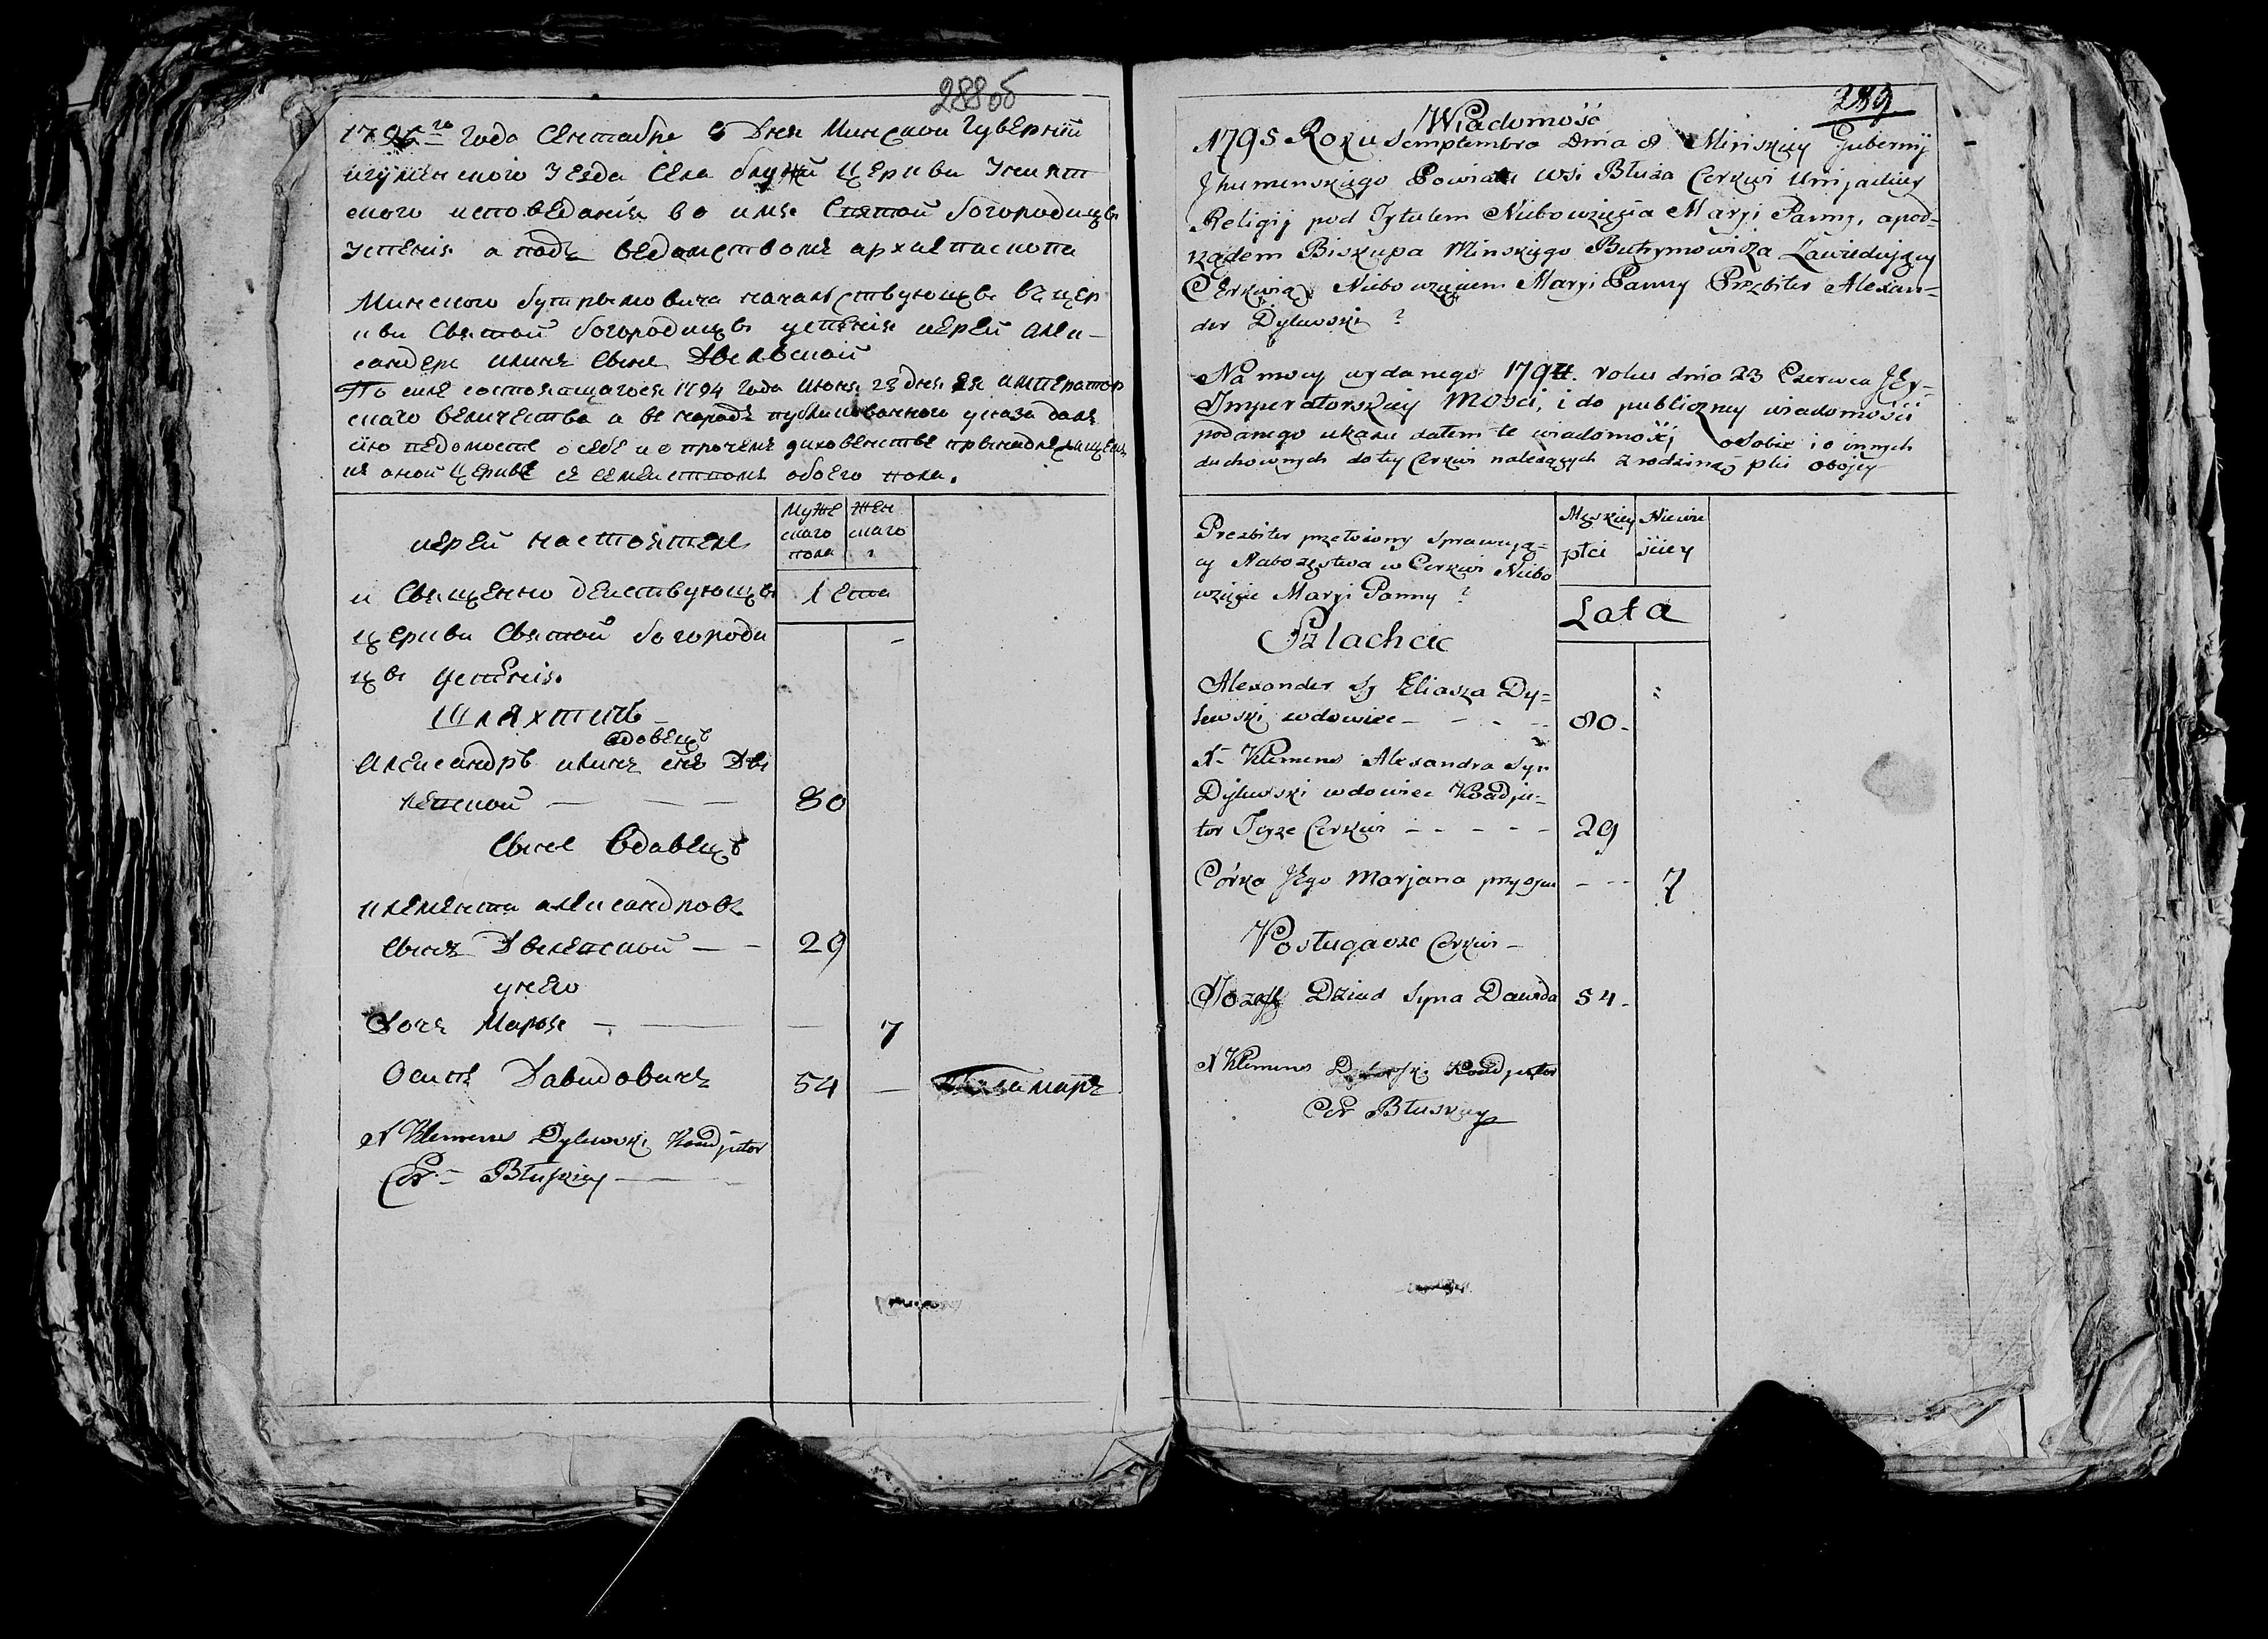 288об
1795го года Сентабра 8 Дня Минской Губернии
игуменского Уезда Села блужи церкви Униятт
ского исповедания во имя Святой богородицы
успения а подъ ведомствомъ архиепископа
Минского бутрымовича началствующы въ цер
кви Святой богородицы успения иерей але-
сандеръ илиинъ сынъ Дылевской
По силе состоящагося 1794 года июня 23 дня ея император
скаго величества и въ народъ публикованного указа далъ
сию ведомость о себе и о прочемъ духовенстве принадлежащемъ
къ оной церкве съ семействомъ обоего пола.
иерей настоятель
и Священно действующы
церкви Святой богороди
цы успения
Муже
скаго
пола
Жен
скаго
Лета
Шляхтичъ
вдовецъ
Александръ илиинъ снъ Ды
левской — — — 80
Сынъ Вдовецъ
клементи александровъ
сынъ Дылевской — — 29
у него
Дочь Марья — — — 7
Осипъ Давидовичъ 54 — понамаръ
X Klemens Dylewski Koadjutor
Cer – Błuskiey —
289
Wiadomość
1795 Roku Semptembra Dnia 8 Minskiey Gubernij
Jhumenskiego Powiatu wsi Błuża Cerkwi Unijackiey
Religij pod Tytułem Niebowzięcia Maryi Panny, a pod-
rządem Biskupa Minskiego Butrymowicza Zawiedujący
Cerkwią Niebowzięciem Maryi Panny Prezbiter Alexan-
der Dylewski
Na mocy wydanego 1794. roku dnia 23 Czerwca Jey-
Imperatorskiey Mości, i do publiczney wiadomości
podanego ukazu dałem te wiadomość, o sobie i o innych
duchownych do tey Cerkwi należących z rodziną płci oboiey
Prezbiter przełożony sprawują=
cy Nabożeństwa w Cerkwi Niebo
wzięcie Maryi Panny
Męzkiey
płci
Niewie
ściey
Lata
Szlachcic
Alexander Sy Eliasza Dy=
lewski wdowiec — — — 80.
X– Klemens Alexandra Syn
Dylewski wdowiec Koadju-
tor Teyże Cerkwi — — — — 29
Córka Jego Marjana przy ojcu — — 7
Posługacze Cerkwi –
Jozeff Dziad Syna Dawida 54.
X Klemens Dylewski Koadjutor
Cer Błuskiey